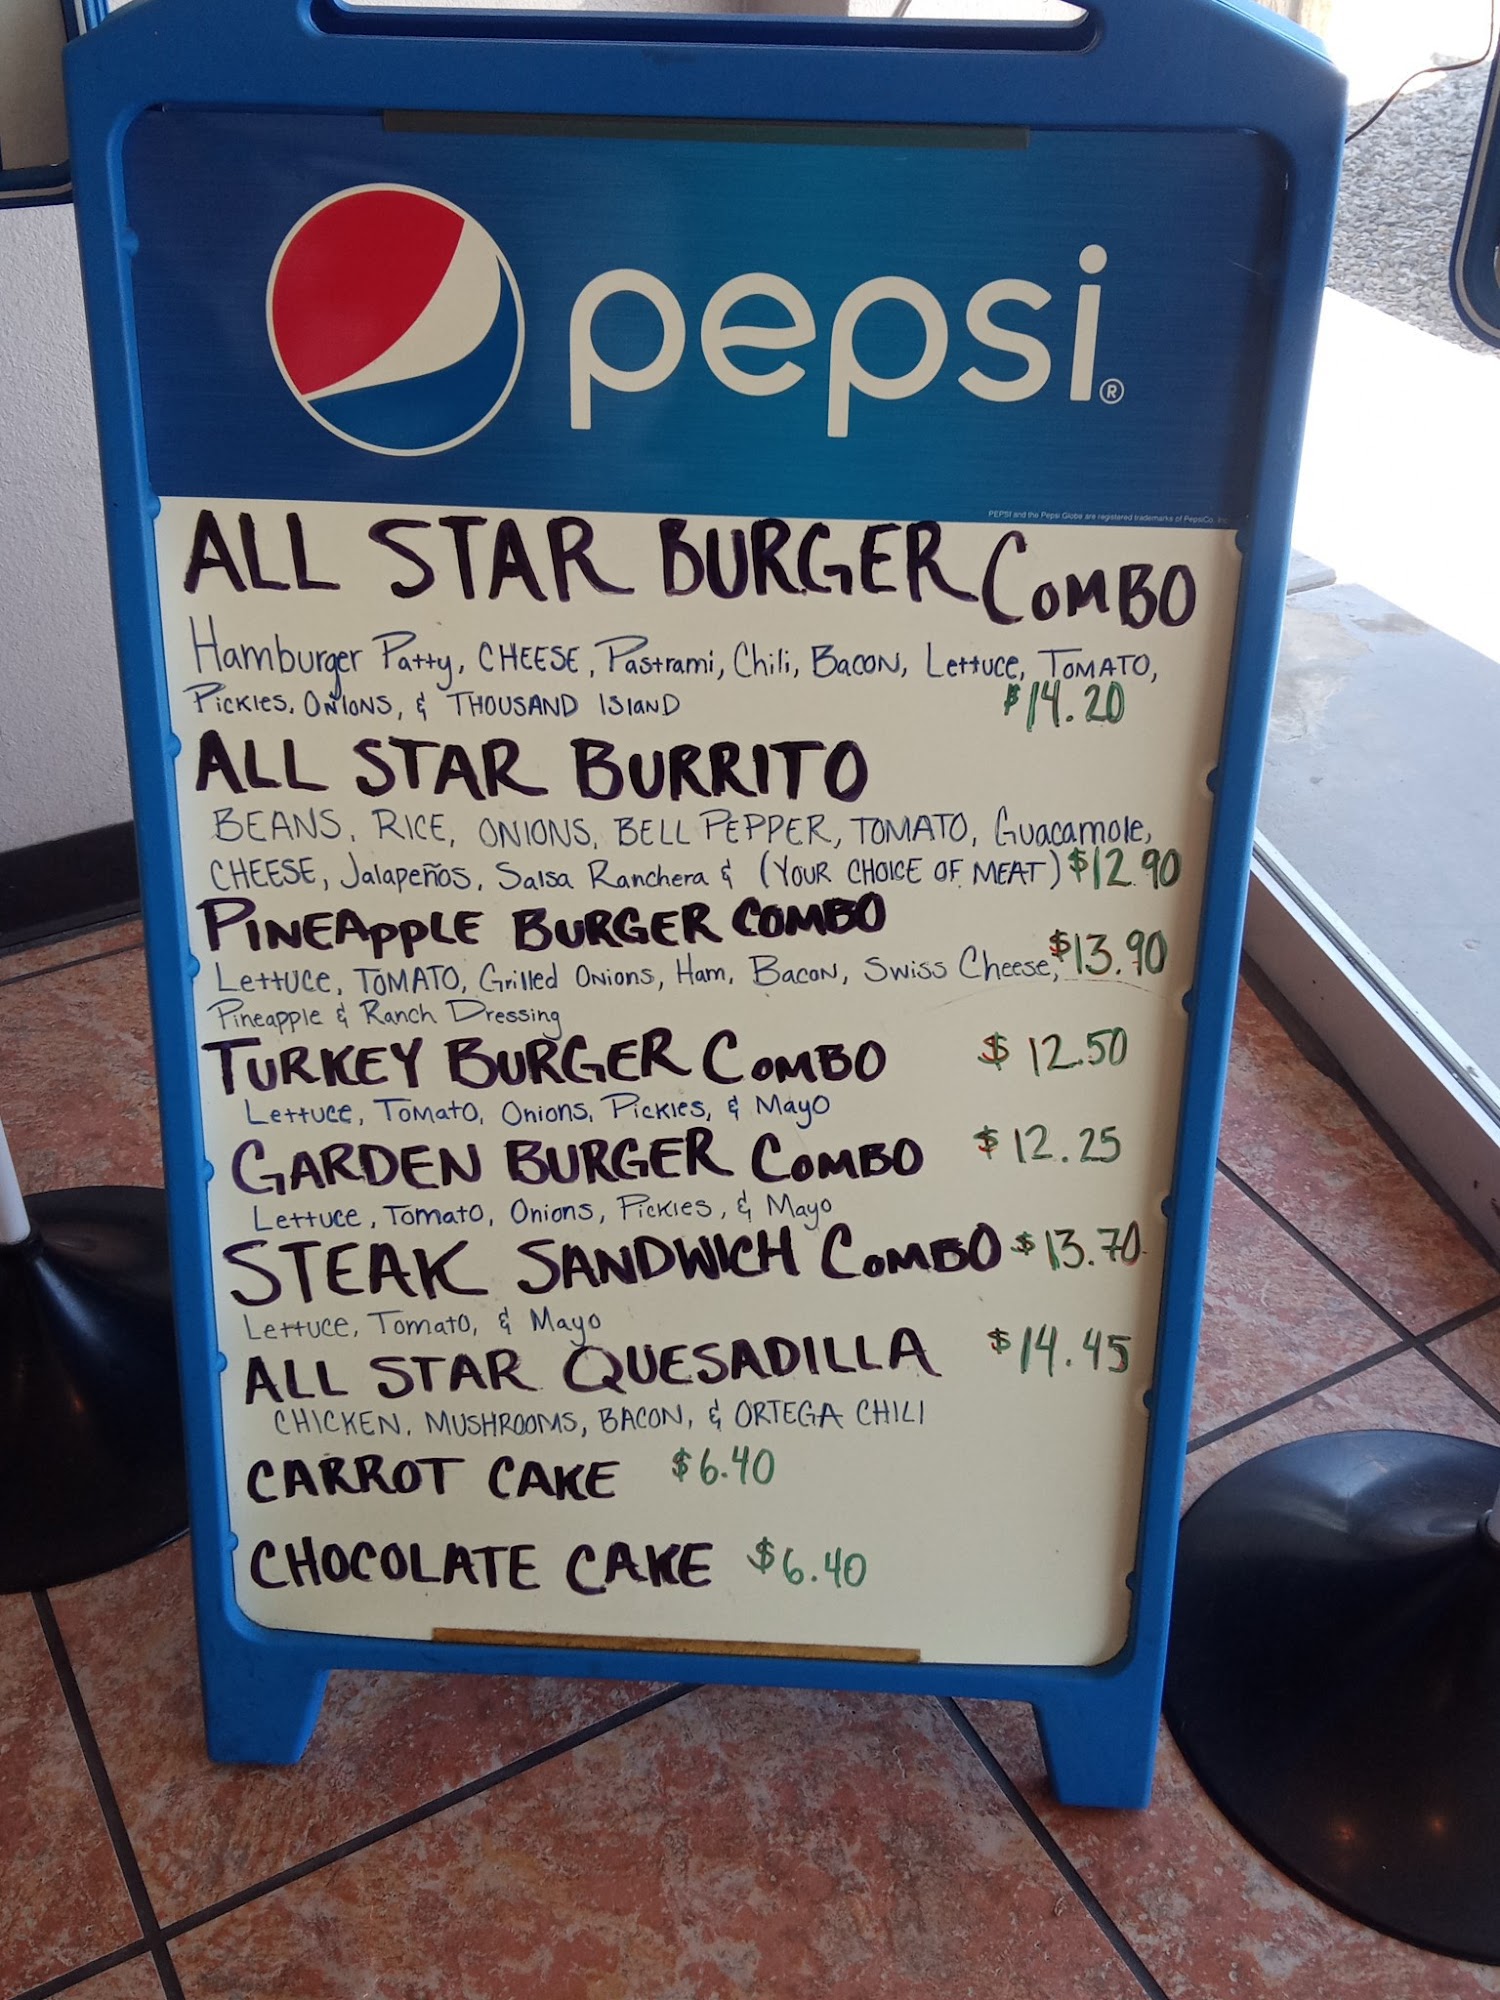 pepsi®
PEPSI and the Pepsi Globe are registered trademarks of PepsiCo, Inc.
ALL STAR BURGER COMBO
Hamburger Patty, CHEESE, Pastrami, Chili, BACON, Lettuce, TOMATO,
Pickles, ONIONS, & THOUSAND ISLAND $14.20
ALL STAR BURRITO
BEANS, RICE, ONIONS, BELL PEPPER, TOMATO, Guacamole,
CHEESE, Jalapeños, Salsa Ranchera & (YOUR CHOICE OF MEAT) $12.90
PINEAPPLE BURGER COMBO
Lettuce, TOMATO, Grilled Onions, Ham, Bacon, Swiss Cheese, $13.90
Pineapple & Ranch Dressing
TURKEY BURGER COMBO $12.50
Lettuce, Tomato, Onions, Pickles, & Mayo
GARDEN BURGER COMBO $12.25
Lettuce, Tomato, Onions, Pickles, & Mayo
STEAK SANDWICH COMBO $13.70
Lettuce, Tomato, & Mayo
ALL STAR QUESADILLA $14.45
CHICKEN, MUSHROOMS, BACON, & ORTEGA CHILI
CARROT CAKE $6.40
CHOCOLATE CAKE $6.40